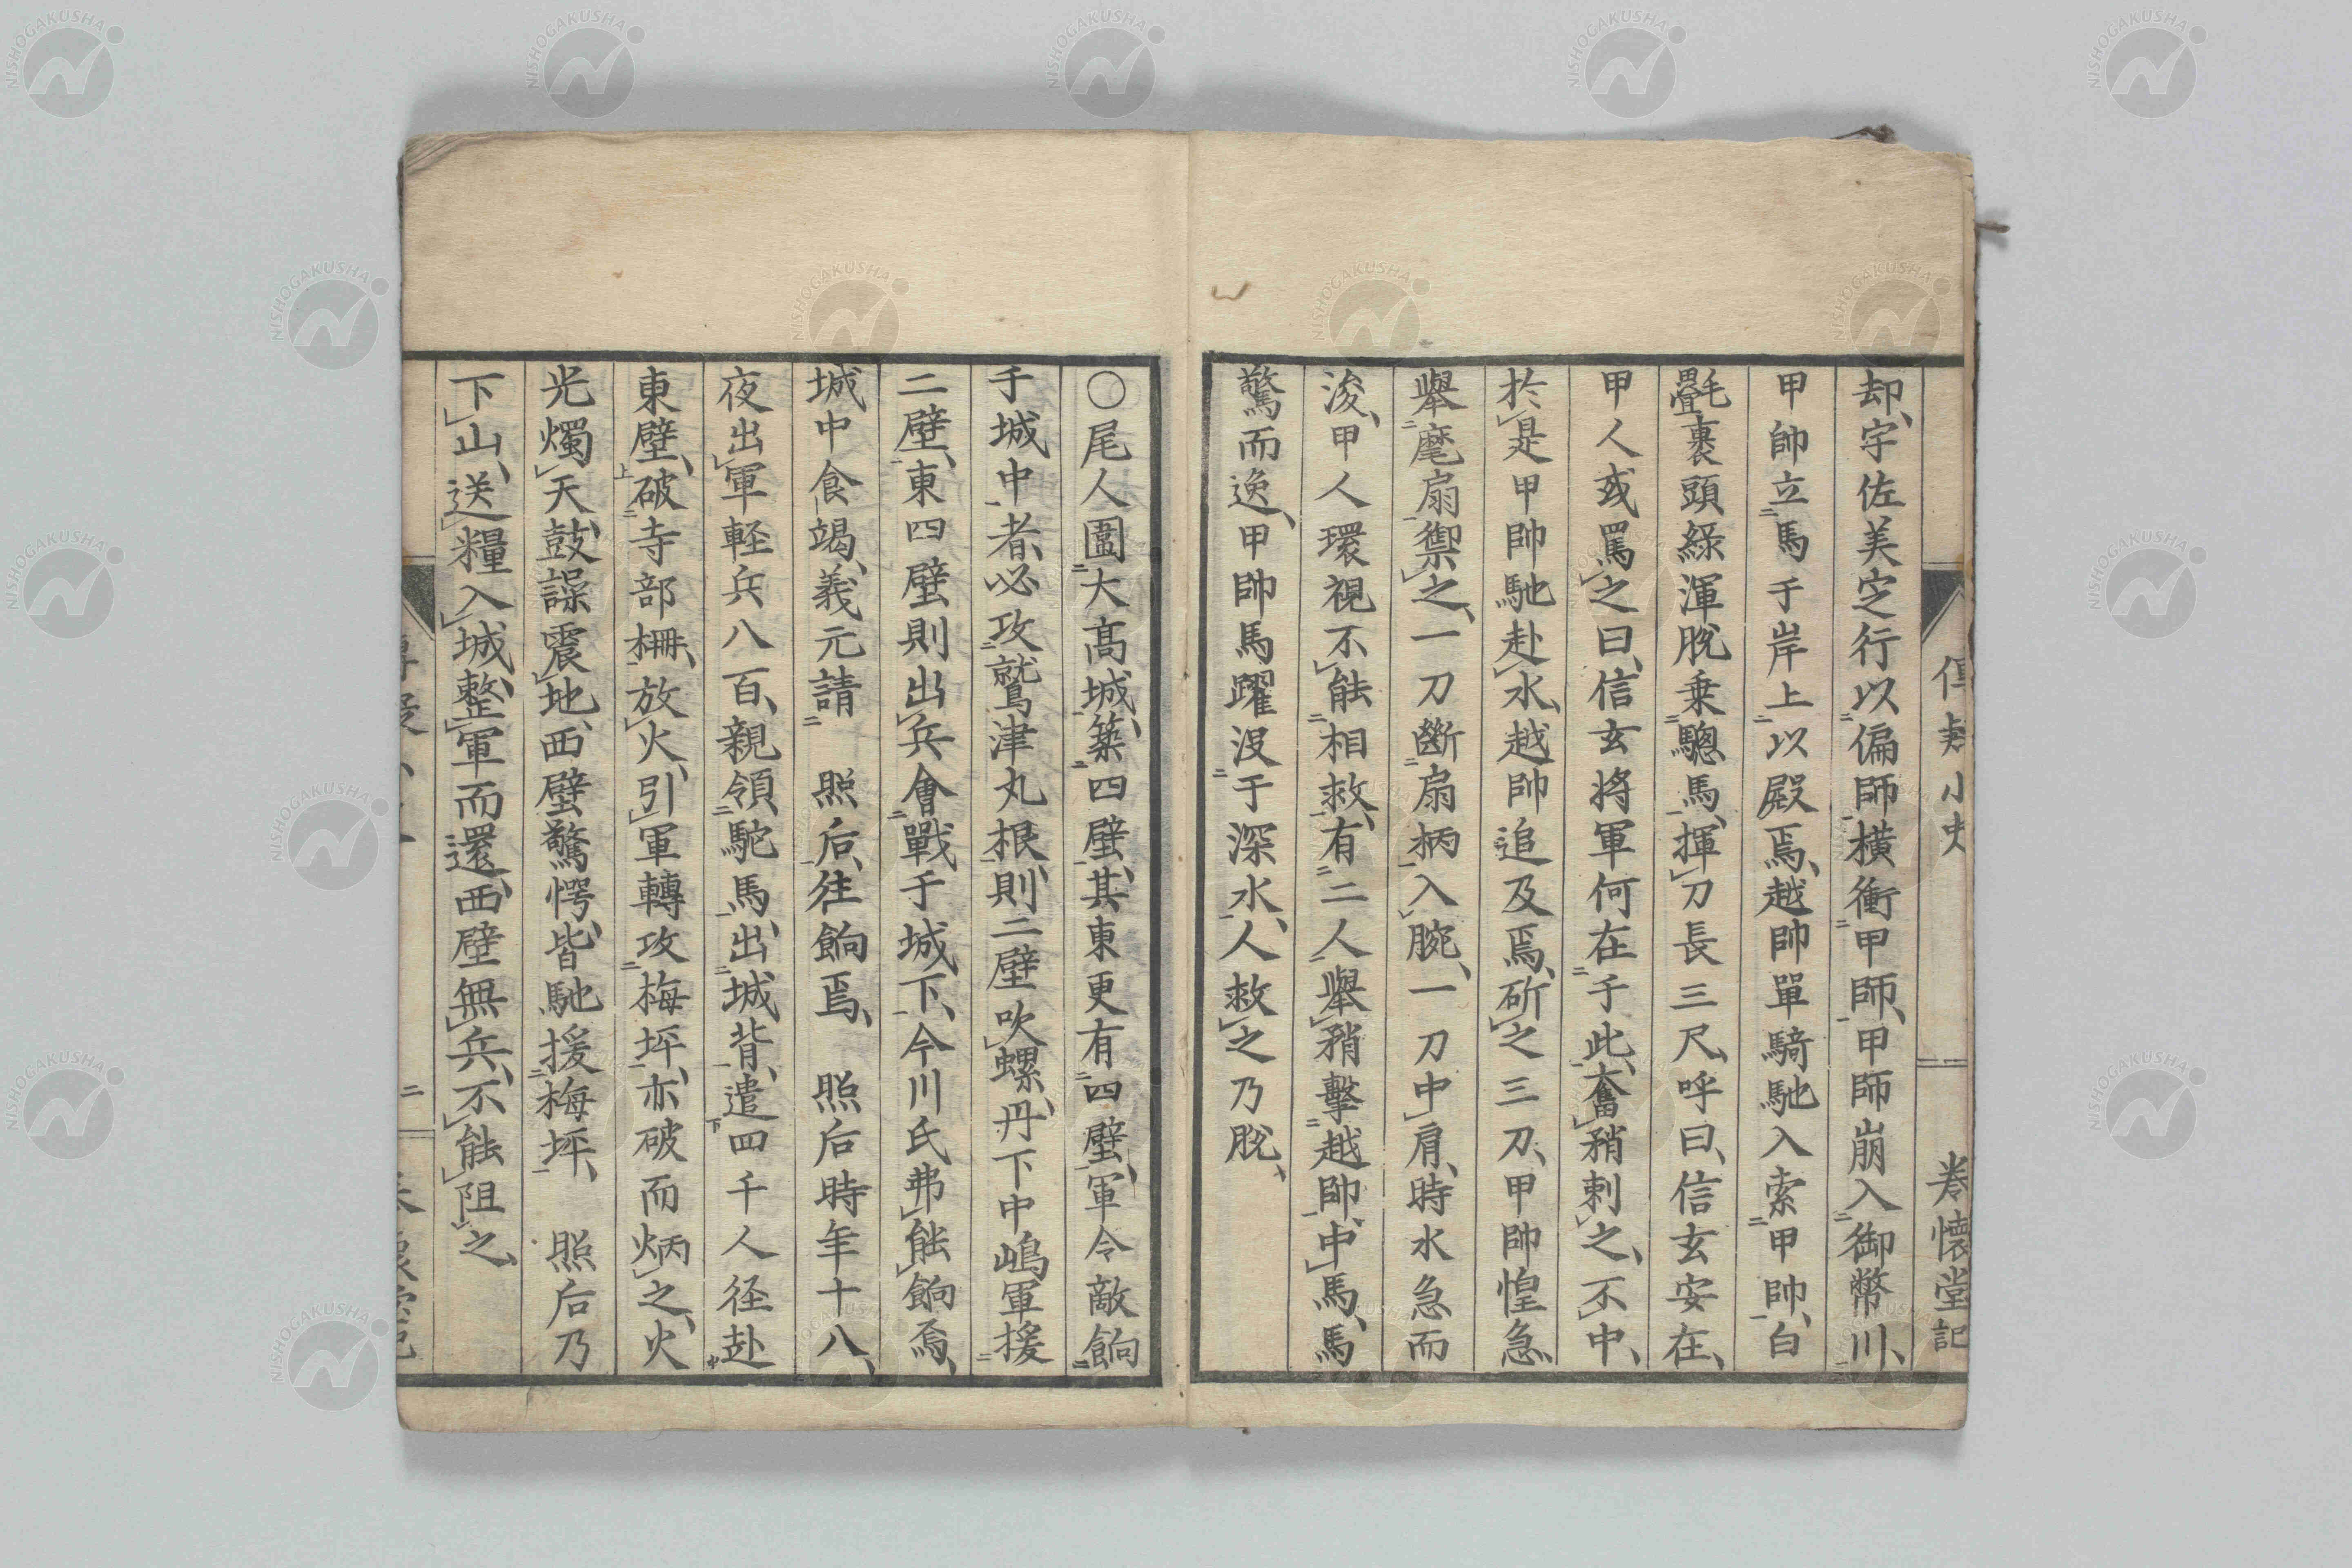 却、宇佐美定行以偏師橫衝甲師、甲師崩入御幣川、
甲帥立馬于岸上以殿焉、越帥單騎馳入索甲帥、白
氎裹頭綠渾脫乗驄馬、揮刀長三尺、呼曰、信玄安在、
甲人或罵之曰、信玄將軍何在于此、奮矟刺之、不中、
於是甲帥馳赴水、越帥追及焉、斫之三刀、甲帥惶急、
擧麾扇禦之、一刀斷扇柄入腕、一刀中肩、時水急而
浚、甲人環視不能相救、有二人擧矟擊越帥、中馬、馬
驚而逸、甲帥馬躍沒于深水、人救之乃脫、
○尾人圍大髙城、築四壁、其東更有四壁、軍令敵餉
于城中者、必攻鷲津丸根、則二壁吹螺、丹下中嶋軍援
二壁、東四壁則出兵會戰于城下、今川氏弗能餉焉、
城中食竭、義元請 照后、往餉焉、 照后時年十八、
夜出軍軽兵八百、親領駝馬、出城背、遣四千人径赴
東壁、破寺部柵、放火、引軍轉攻梅坪、亦破而炳之、火
光燭天、鼓譟震地、西壁驚愕、皆馳援梅坪、 照后乃
下山、送糧入城、整軍而還、西壁無兵、不能阻之、
小史
卷懐堂記
二
NISHOGAKUSHA